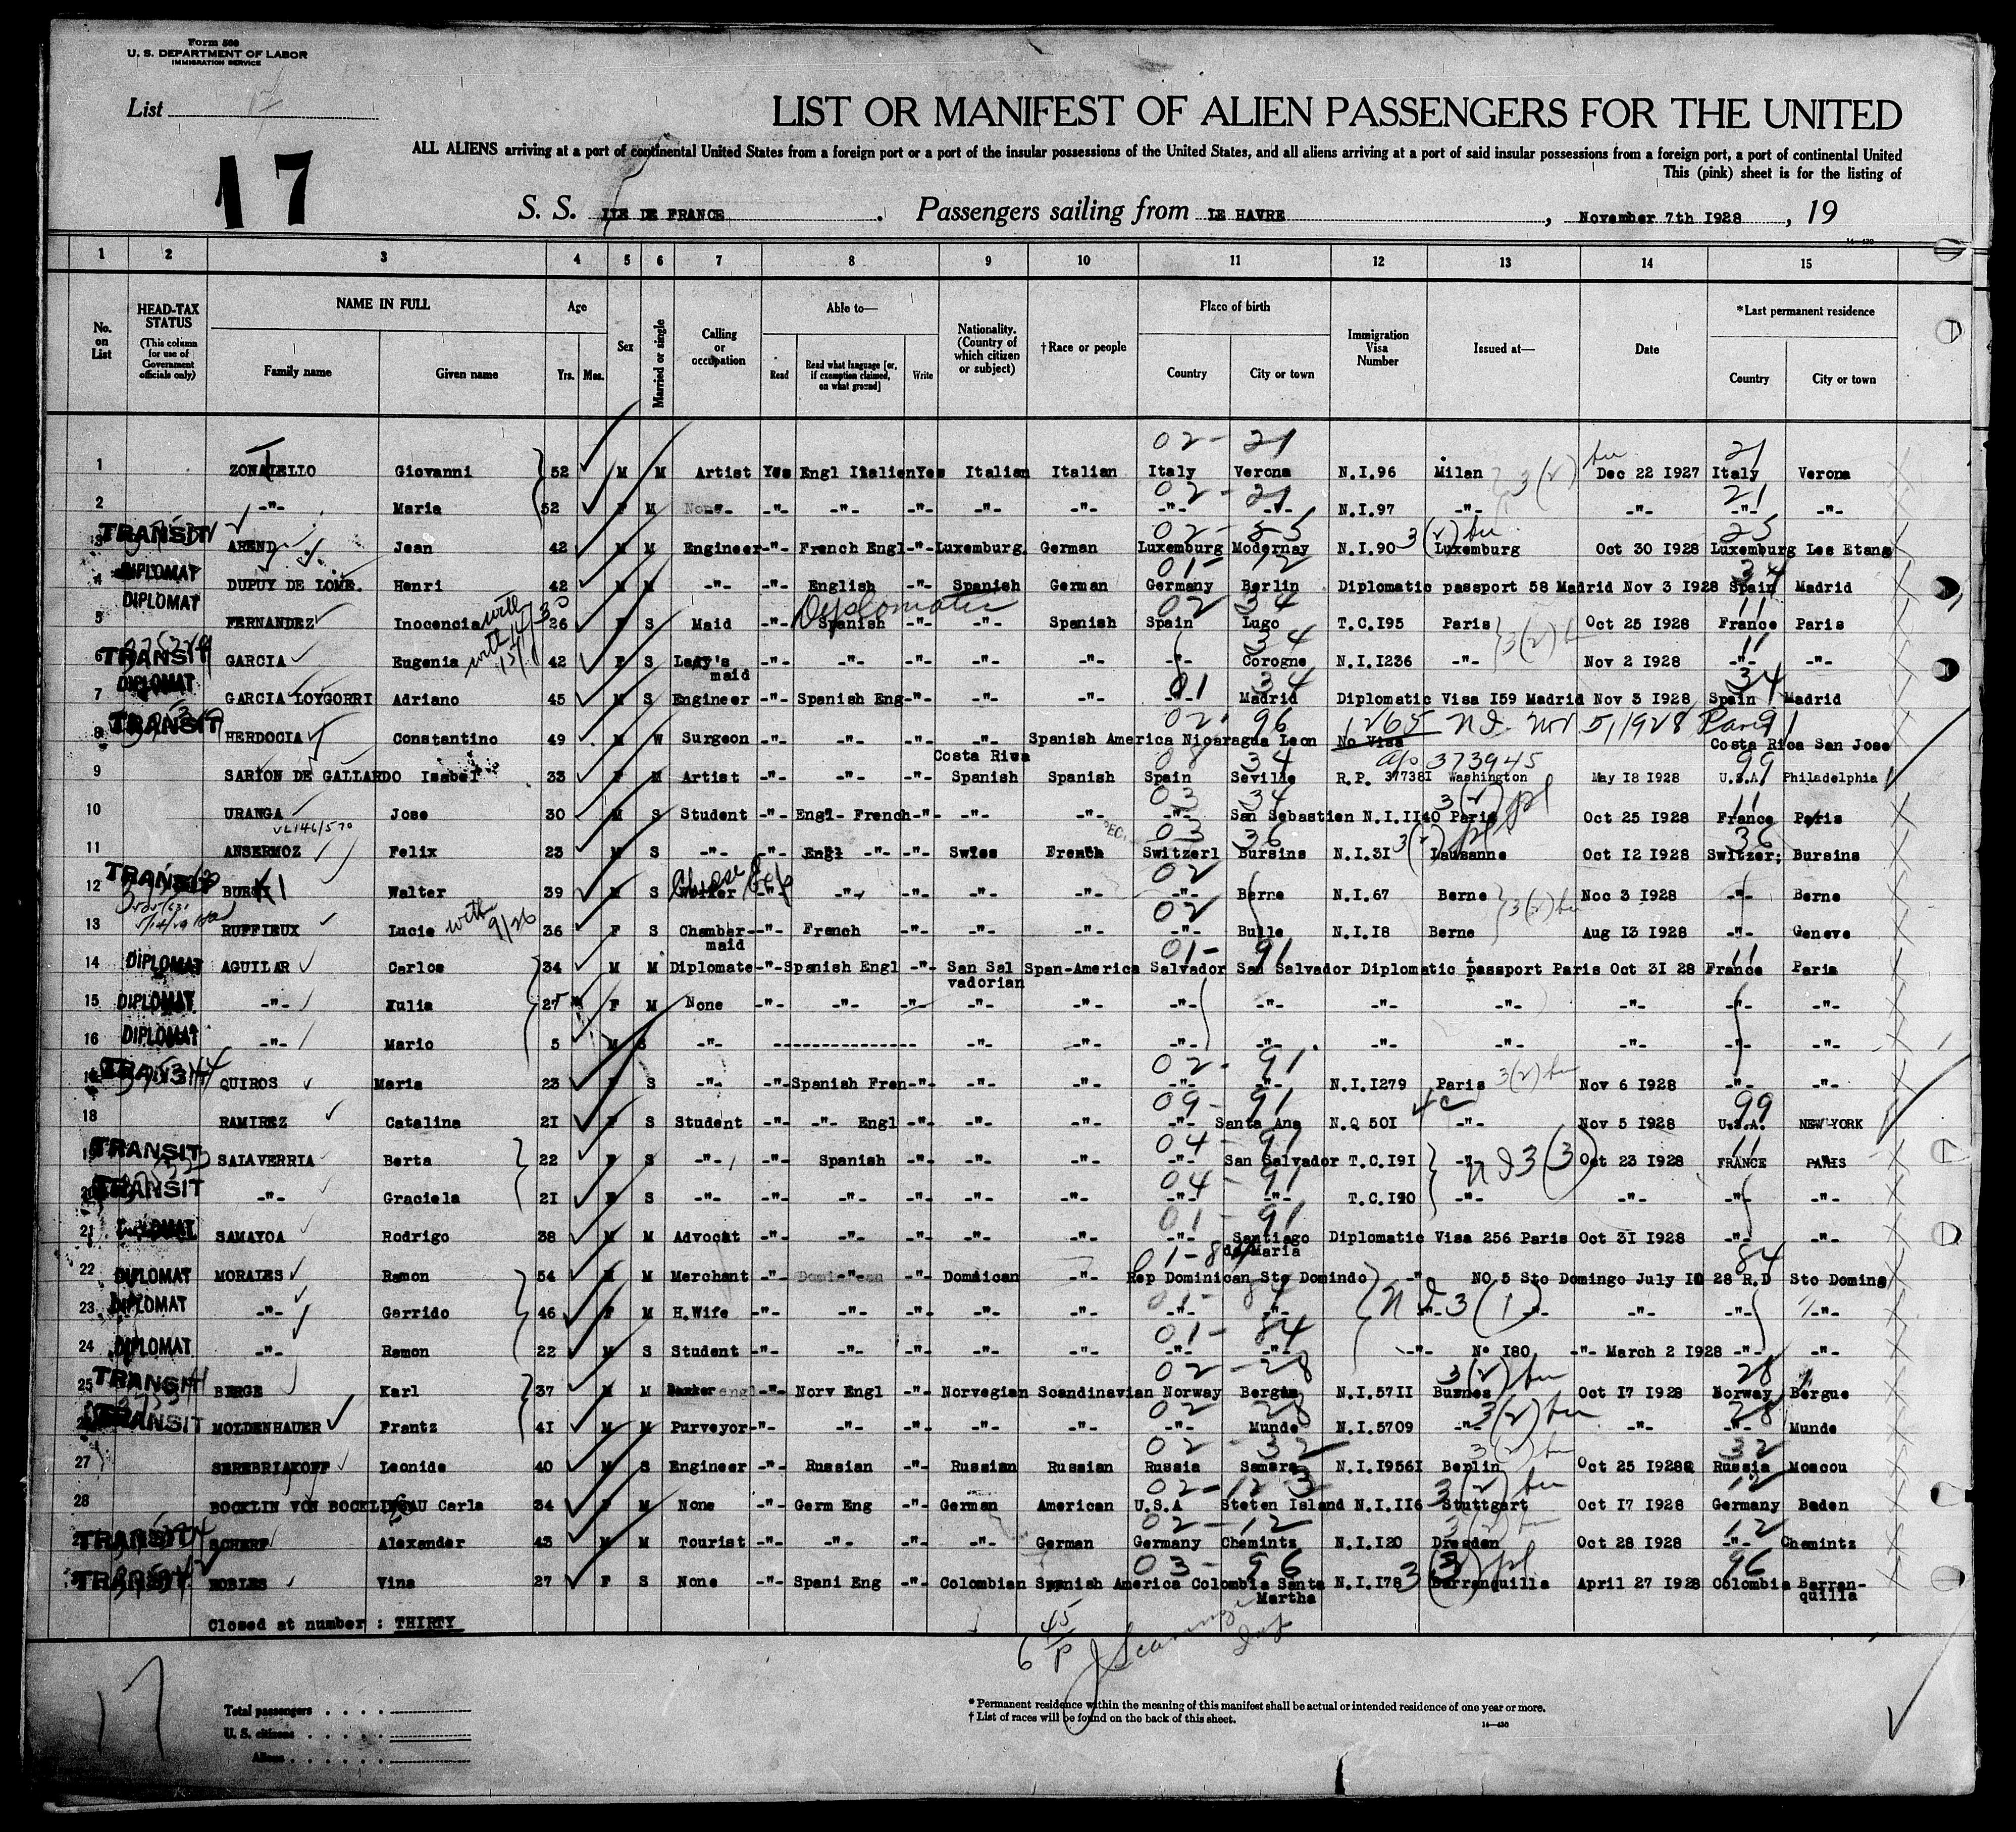 Form 500
U. S. DEPARTMENT OF LABOR
IMMIGRATION SERVICE
List 17
17
LIST OR MANIFEST OF ALIEN PASSENGERS FOR THE UNITED
ALL ALIENS arriving at a port of continental United States from a foreign port or a port of the insular possessions of the United States, and all aliens arriving at a port of said insular possessions from a foreign port, a port of continental United
This (pink) sheet is for the listing of
S. S. ILE DE FRANCE . Passengers sailing from LE HAVRE , November 7th 1928 , 19
14—430
1 2 3 4 5 6 7 8 9 10 11 12 13 14 15
No. on List
HEAD-TAX STATUS (This column for use of Government officials only)
NAME IN FULL Family name Given name
Age Yrs. Mos.
Sex
Married or single
Calling or occupation
Able to— Read Read what language [or, if exemption claimed, on what ground] Write
Nationality. (Country of which citizen or subject)
†Race or people
Place of birth Country City or town
Immigration Visa Number
Issued at—
Date
*Last permanent residence Country City or town
02 - 21 21
1 ZONATELLO Giovanni 52 M M Artist Yes Engl Italien Yes Italian Italian Italy Verona N.I.96 Milan 3(2) Dec 22 1927 Italy Verona
02 - 21 21
2 -"- Maria 52 F M None -"- -"- -"- -"- -"- -"- -"- N.I.97 -"- -"- -"- -"-
02 - 25
3 TRANSIT AREND Jean 42 M M Engineer -"- French Engl -"- Luxemburg. German Luxemburg Modernay N.I.90 3(2) Luxemburg Oct 30 1928 Luxemburg Les Etang
01 - 12 34
4 DIPLOMAT DUPUY DE LOME. Henri 42 M M -"- -"- English -"- Spanish German Germany Berlin Diplomatic passport 58 Madrid Nov 3 1928 Spain Madrid
DIPLOMAT with 14/30 02 34 11
5 FERNANDEZ Inocencia 26 F S Maid -"- Spanish -"- -"- Spanish Spain Lugo T.C.195 Paris 3(2) Oct 25 1928 France Paris
34 11
6 TRANSIT GARCIA Eugenia 42 F S Lady's maid -"- -"- -"- -"- -"- -"- Corogne N.I.1236 -"- Nov 2 1928 -"- -"-
01 34 34
7 DIPLOMAT GARCIA LOYGORRI Adriano 45 M S Engineer -"- Spanish Eng -"- -"- -"- -"- Madrid Diplomatic Visa 159 Madrid Nov 3 1928 Spain Madrid
02 - 96 1265 Nov 5, 1928 Paris 91
8 TRANSIT HERDOCIA Constantino 49 M W Surgeon -"- -"- -"- Costa Riwa Spanish America Nicaragua Leon No Visa Costa Rica San Jose
08 34 373945 99
9 SARION DE GALLARDO Isabel 33 F M Artist -"- -"- -"- Spanish Spanish Spain Seville R.P. 377381 Washington May 18 1928 U.S.A. Philadelphia
03 34 11
10 URANGA Jose 30 M S Student -"- Engl- French -"- -"- -"- -"- San Sebastien N.I.1140 Paris Oct 25 1928 France Paris
03 36 36
11 ANSERMOZ Felix 23 M S -"- -"- Engl -"- -"- Swiss French Switzerl Bursins N.I.31 Lausanne Oct 12 1928 Switzer; Bursins
02
12 TRANSIT BURKI Walter 39 M S Worker -"- -"- -"- -"- -"- -"- Berne N.I.67 Berne 3(2) Noc 3 1928 -"- Berne
with 9/26 02
13 RUFFIEUX Lucie 36 F S Chamber-maid -"- French -"- -"- -"- -"- Bulle N.I.18 Berne Aug 13 1928 -"- Geneve
01 - 91 11
14 DIPLOMAT AGUILAR Carlos 34 M M Diplomate -"- Spanish Engl -"- San Sal vadorian Span-America Salvador San Salvador Diplomatic passport Paris Oct 31 28 France Paris
15 DIPLOMAT -"- Xulia 27 F M None -"- -"- -"- -"- -"- -"- -"- -"- -"- -"- -"- -"-
16 DIPLOMAT -"- Mario 5 M S -"- --------------- -"- -"- -"- -"- -"- -"- -"- -"- -"-
02 - 91
TRANSIT QUIROS Maria 23 F S -"- -"- Spanish Fren -"- -"- -"- -"- -"- N.I.1279 Paris 3(2) Nov 6 1928 -"- -"-
09 - 91 99
18 RAMIREZ Catalina 21 F S Student -"- -"- Engl -"- -"- -"- -"- Santa Ana N.Q 501 -"- Nov 5 1928 U.S.A. NEW YORK
04 - 91 11
TRANSIT SALAVERRIA Berta 22 F S -"- -"- Spanish -"- -"- -"- -"- San Salvador T.C.191 -"- 3(3) Oct 23 1928 FRANCE PARIS
04 - 91
TRANSIT -"- Graciela 21 F S -"- -"- -"- -"- -"- -"- -"- -"- T.C.190 -"- -"- -"- -"-
01 - 91
21 DIPLOMAT SAMAYOA Rodrigo 38 M M Advocat -"- -"- -"- -"- -"- -"- Santiago de Maria Diplomatic Visa 256 Paris Oct 31 1928 -"- -"-
01 - 84 84
22 DIPLOMAT MORALES Ramon 54 M M Merchant -"- -"- Domnican -"- Rep Dominican Sto Domindo -"- NO 5 Sto Domingo July 10 28 R.D Sto Doming
01 - 84
23 DIPLOMAT -"- Garrido 46 F M H.Wife -"- -"- -"- -"- -"- -"- -"- -"- 3(1) -"- -"- -"- -"-
01 - 84
24 DIPLOMAT -"- Ramon 22 M S Student -"- -"- -"- -"- -"- -"- -"- -"- N° 180 -"- March 2 1928 -"- -"-
02 - 28 3(2) 28
25 TRANSIT BERGE Karl 37 M M Banker -"- Norv Engl -"- Norvegian Scandinavian Norway Bergen N.I.5711 Oct 17 1928 Norway Bergue
02 28 3(2) 28
TRANSIT MOLDENHAUER Frantz 41 M M Purveyor -"- -"- -"- -"- -"- -"- Munde N.I.5709 -"- -"- -"- Munde
02 - 32 3(2) 32
27 SEREBRIAKOFF Leonide 40 M S Engineer -"- Russian -"- Russian Russian Russia Samara N.I.19561 Berlin Oct 25 1928 Russia Moscou
02 - 12 3 3(2) 12
28 BOCKLIN VON BOCKLINSAU Carla 34 F M None -"- Germ Eng -"- German American U.S.A Steten Island N.I.116 Stuttgart Oct 17 1928 Germany Baden
02 - 12 3(2) 12
TRANSIT SCHERF Alexander 43 M M Tourist -"- -"- -"- -"- German Germany Chemintz N.I.120 Dresden Oct 28 1928 -"- Chemintz
03 - 96 3(3) 96
TRANSIT ROBLES Vina 27 F S None -"- Spani Eng -"- Colombian Spanish America Colombia Santa Martha N.I.178 Barranquilla April 27 1928 Colombia Barran-quilla
Closed at number : THIRTY
6 45/P
17
Total passengers
U. S. citizens
Aliens
* Permanent residence within the meaning of this manifest shall be actual or intended residence of one year or more.
† List of races will be found on the back of this sheet.
14—430